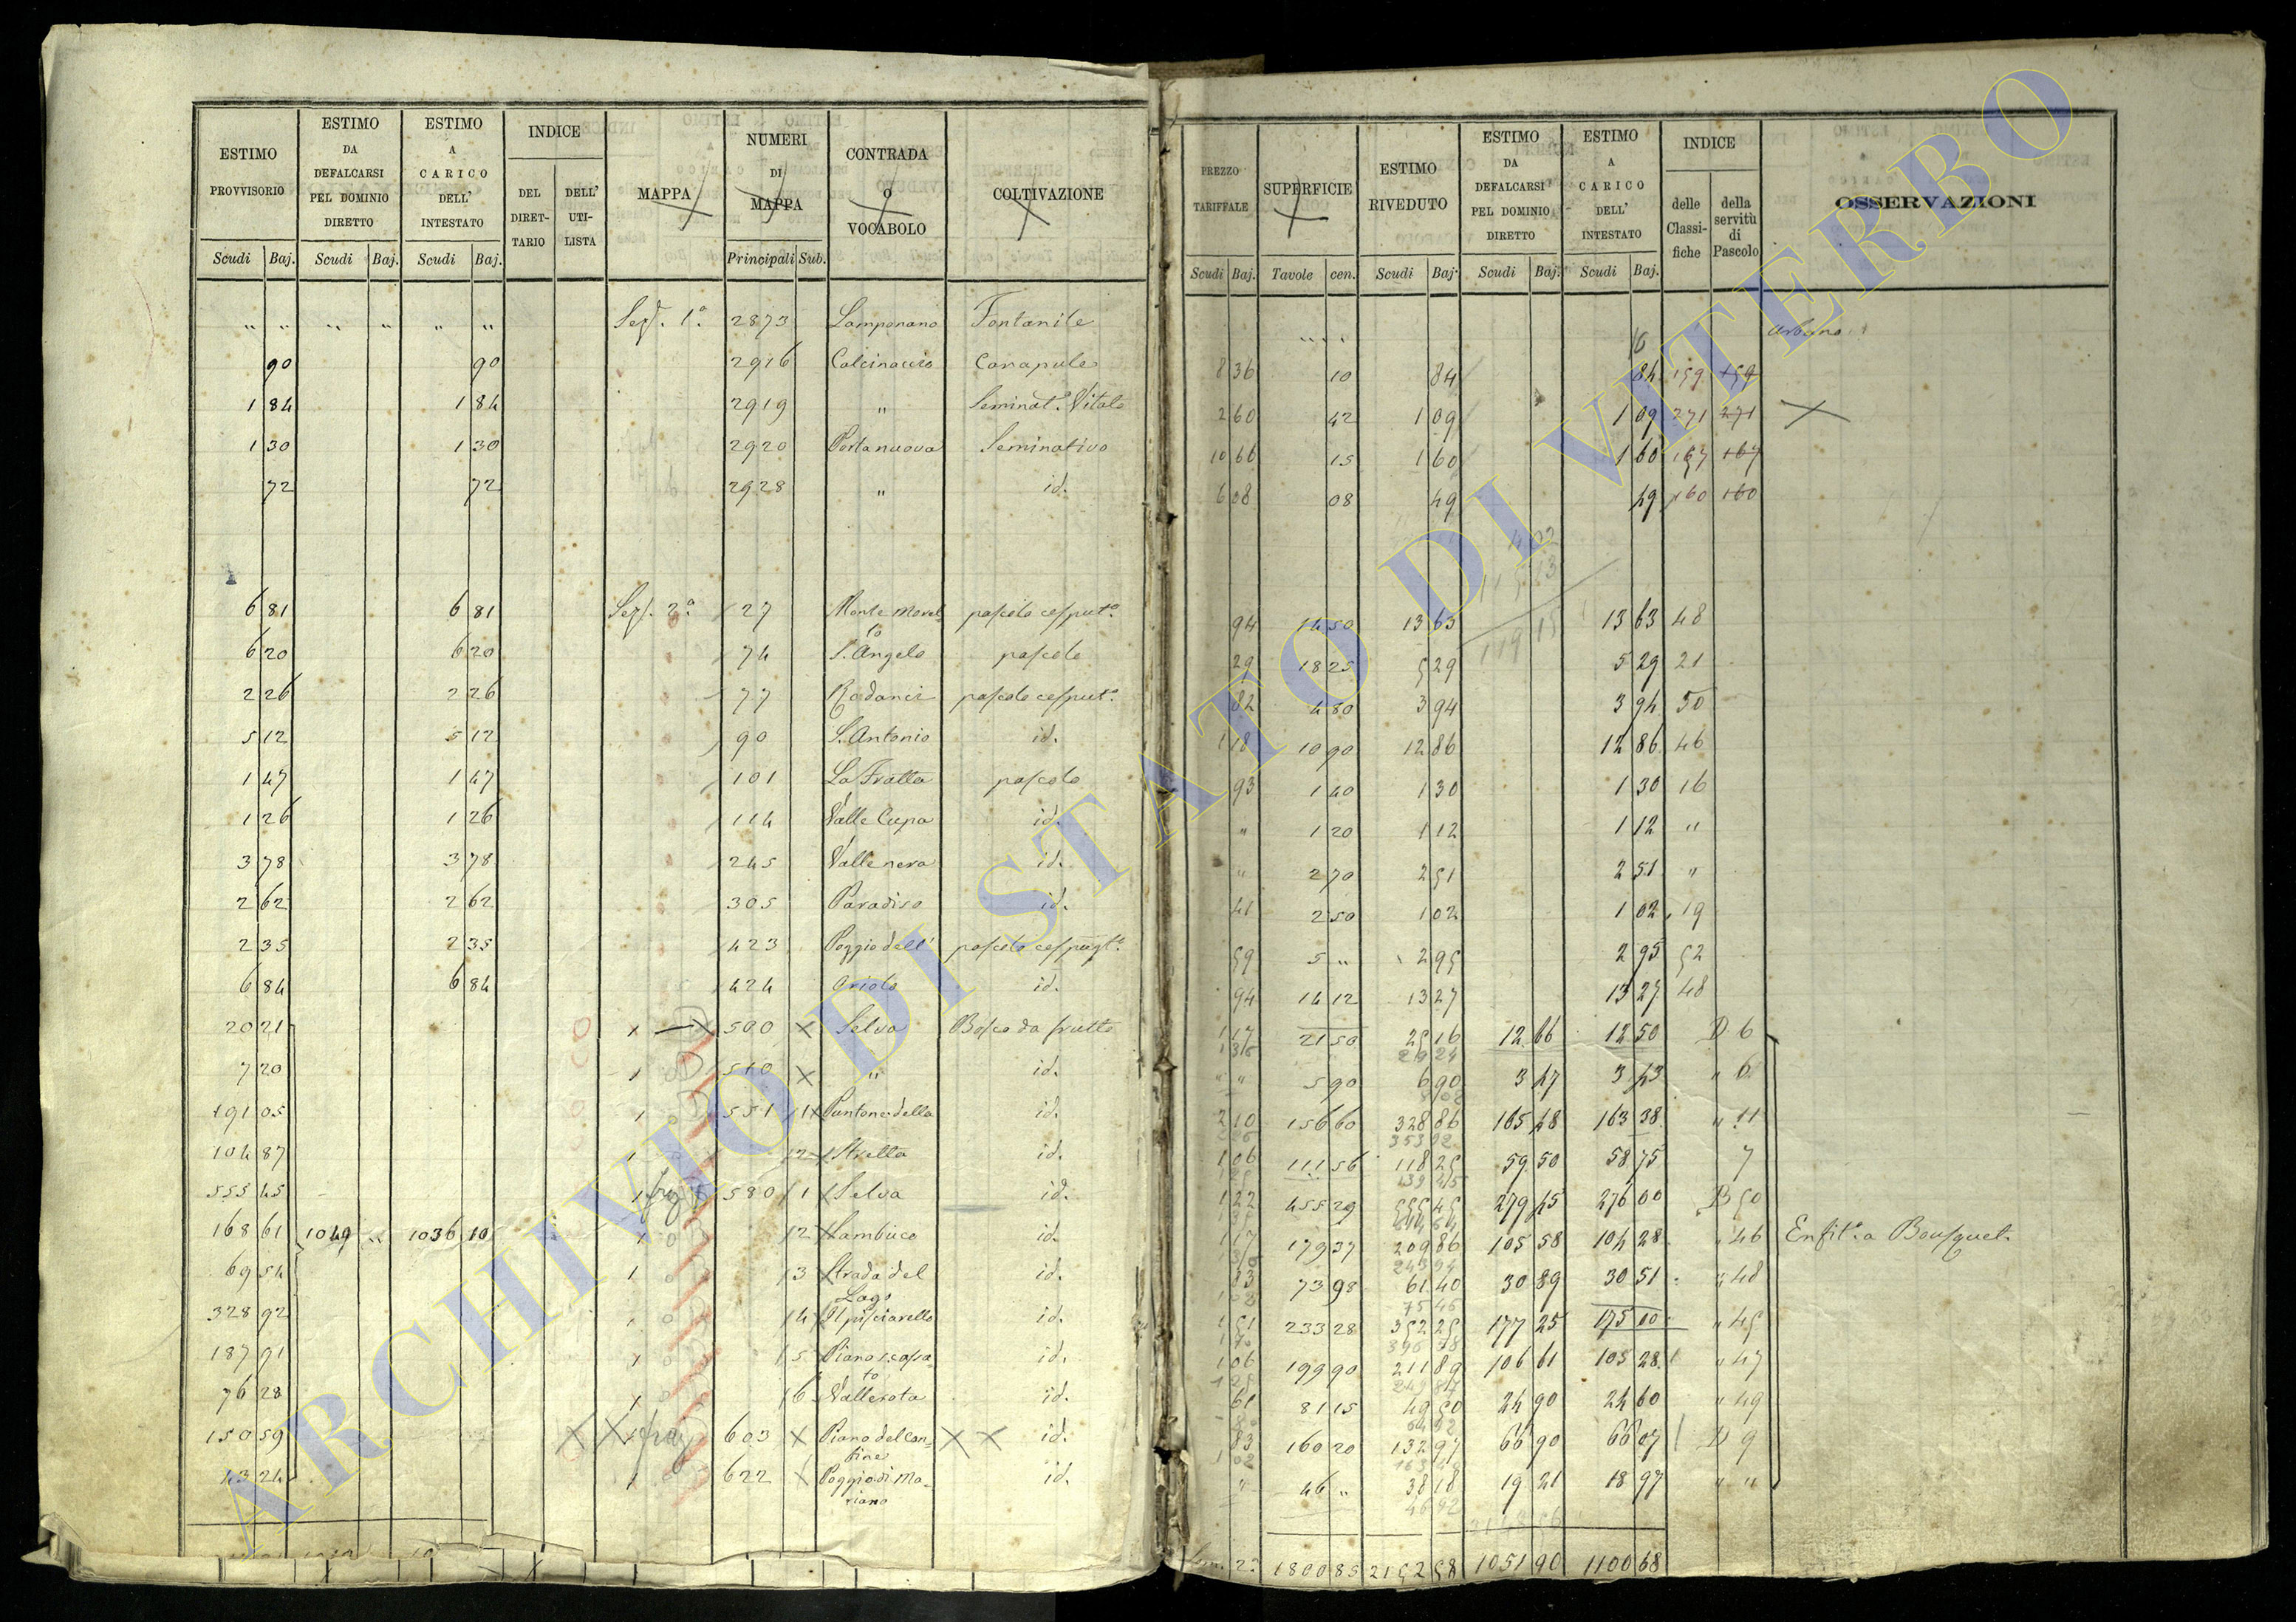 ESTIMO PROVVISORIO | ESTIMO DA DEFALCARSI PEL DOMINIO DIRETTO | ESTIMO A CARICO DELL' INTESTATO | INDICE | MAPPA | NUMERI DI MAPPA | CONTRADA O VOCABOLO | COLTIVAZIONE
DEL DIRETTARIO | DELL' UTILISTA
Scudi | Baj. | Scudi | Baj. | Scudi | Baj. | Principali | Sub.
" " | " " | " " | Sez. 1a. | 2873 | Lamponano | Fontanile
90 | 90 | 2916 | Calcinaccio | Canapule
1 84 | 1 84 | 2919 | " | Seminat. Vitato
1 30 | 1 30 | 2920 | Portanuova | Seminativo
72 | 72 | 2928 | " | id.
6 81 | 6 81 | Sez. 2a. | 27 | pascolo cesput.o
6 20 | 6 20 | 74 | S. Angelo | pascolo
2 26 | 2 26 | 77 | pascolo cesput.o
5 12 | 5 12 | 90 | S. Antonio | id.
1 47 | 1 47 | 101 | La Fratta | pascolo
1 26 | 1 26 | 114 | Valle Cupa | id.
3 78 | 3 78 | 245 | Valle nera | id.
2 62 | 2 62 | 305 | Paradiso | id.
2 35 | 2 35 | 423 | Poggio dell' | pascolo cespugt.o
6 84 | 6 84 | 424 | Oriolo | id.
20 21 | 500 | Selva | Bosco da frutto
7 20 | 510 | " | id.
191 05 | 1 | 551 | 1 | Puntone della | id.
104 87 | 1 | 2 | Stretta | id.
555 45 | 1 | 580 | 1 | Selva | id.
168 61 | 1049 " | 1036 10 | 1 | 2 | Sambuco | id.
69 54 | 1 | 3 | Strada del Lago | id.
328 92 | 1 | 4 | Il pisciarello | id.
187 91 | 1 | 5 | Piano scassato | id.
76 28 | 1 | 6 | Vallerota | id.
150 59 | 603 | Piano del confine | id.
43 24 | 1 | 622 | Poggio di Mariano | id.
PREZZO TARIFFALE | SUPERFICIE | ESTIMO RIVEDUTO | ESTIMO DA DEFALCARSI PEL DOMINIO DIRETTO | ESTIMO A CARICO DELL' INTESTATO | INDICE | OSSERVAZIONI
delle Classifiche | della servitù di Pascolo
Scudi | Baj. | Tavole | cen. | Scudi | Baj. | Scudi | Baj. | Scudi | Baj.
" " | Urbano
8 36 | 10 | 84 | 84 | 159 | 159
2 60 | 42 | 1 09 | 1 09 | 271 | 271
10 66 | 15 | 1 60 | 1 60 | 167 | 167
6 08 | 08 | 49 | 49 | 160 | 160
94 | 14 50 | 13 63 | 13 63 | 48
29 | 18 25 | 5 29 | 5 29 | 21
82 | 4 80 | 3 94 | 3 94 | 50
1 18 | 10 90 | 12 86 | 12 86 | 46
93 | 1 40 | 1 30 | 1 30 | 16
" | 1 20 | 1 12 | 1 12 | "
" | 2 70 | 2 51 | 2 51 | "
41 | 2 50 | 1 02 | 1 02 | 19
59 | 5 " | 2 95 | 2 95 | 52
94 | 14 12 | 13 27 | 13 27 | 48
1 17 | 21 50 | 25 16 | 12 66 | 12 50 | D 6
" " | 5 90 | 6 90 | 3 47 | 3 43 | " 6
2 10 | 156 60 | 328 86 | 165 48 | 163 38 | " 11
1 06 | 111 56 | 118 25 | 59 50 | 58 75 | 7
1 22 | 455 29 | 555 45 | 279 45 | 276 00 | B 50
1 17 | 179 37 | 209 86 | 105 58 | 104 28 | " 46 | Enfit. a Bousquet.
83 | 73 98 | 61 40 | 30 89 | 30 51 | " 48
1 51 | 233 28 | 352 25 | 177 25 | 175 00 | " 45
1 06 | 199 90 | 211 89 | 106 61 | 105 28 | " 47
61 | 81 15 | 49 50 | 24 90 | 24 60 | " 49
83 | 160 20 | 132 97 | 66 90 | 66 07 | D 9
" | 46 " | 38 18 | 19 21 | 18 97 | " "
1800 85 | 2152 58 | 1051 90 | 1100 68
ARCHIVIO DI STATO DI VITERBO